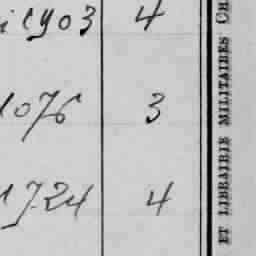 1903 4
1076 3
1724 4
ET LIBRAIRIE MILITAIRES CH